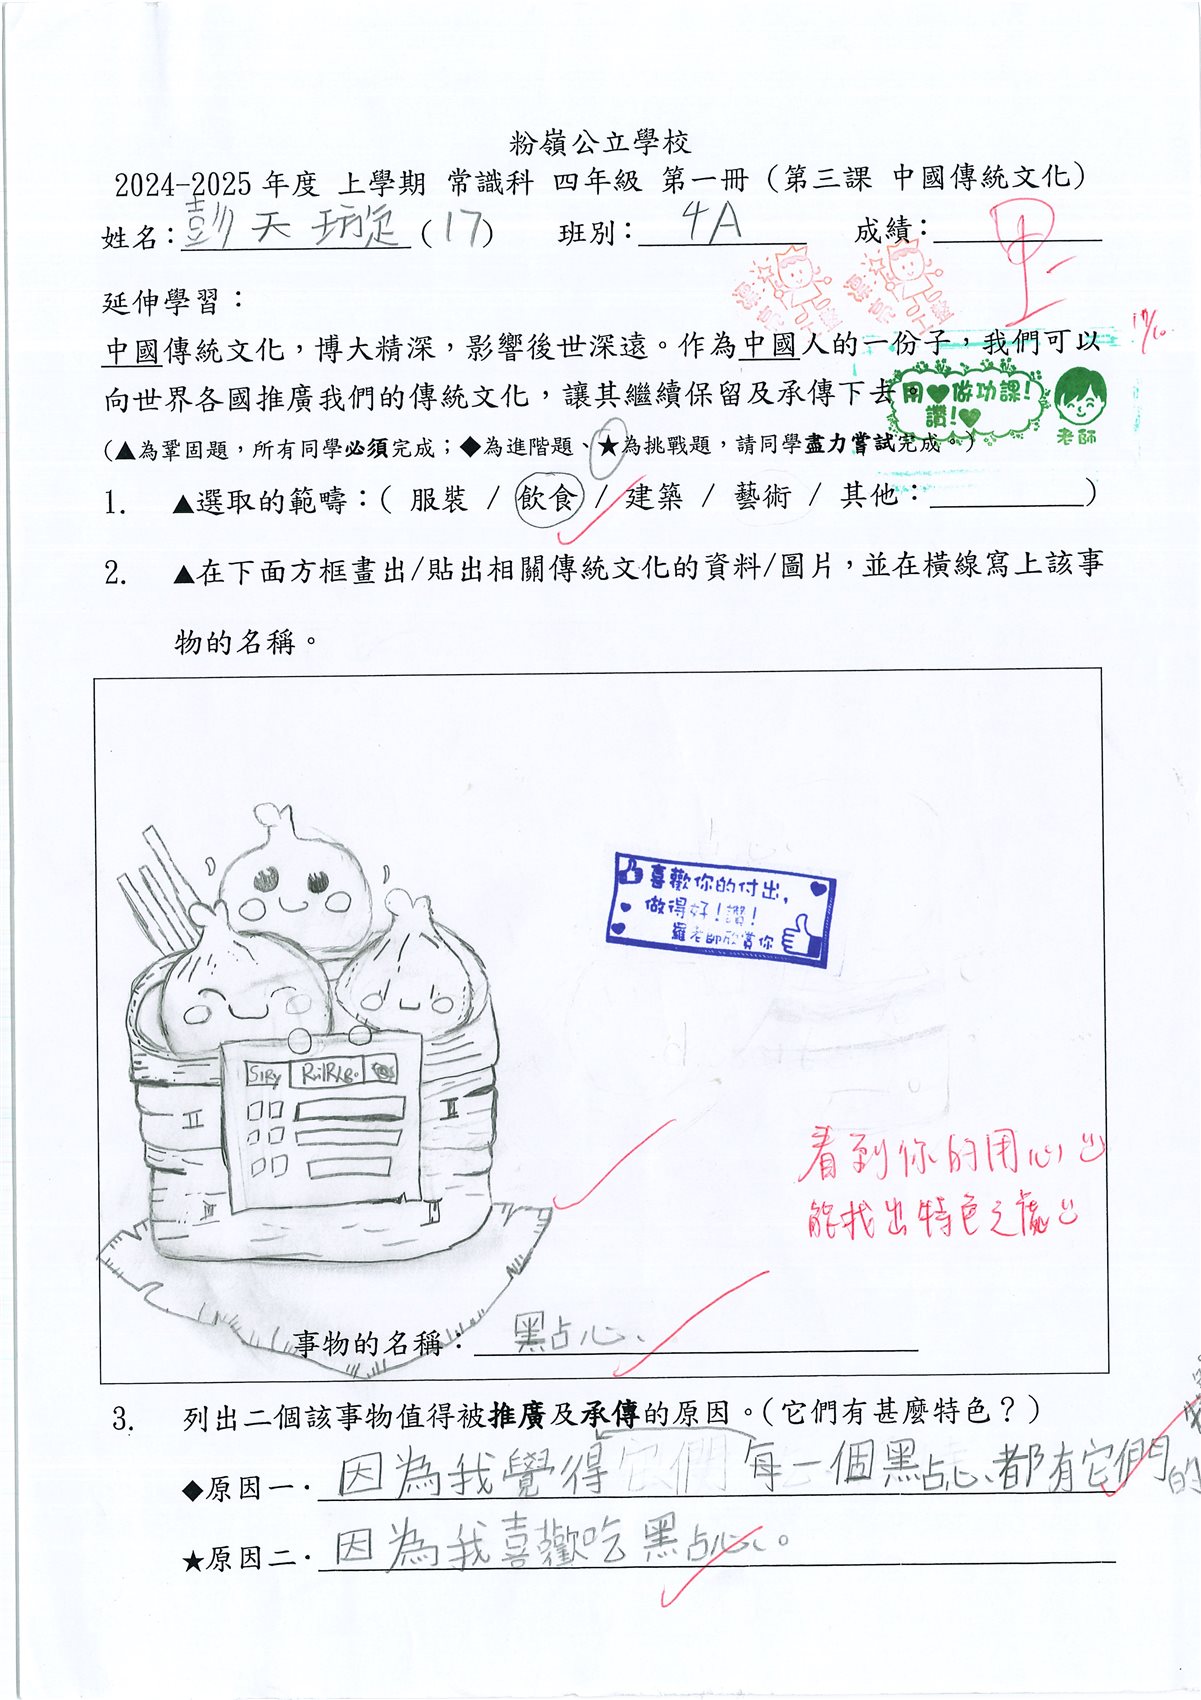 粉嶺公立學校
2024-2025 年度 上學期 常識科 四年級 第一冊 (第三課 中國傳統文化)
姓名：彭天 (17) 班別：4A 成績：甲-
延伸學習：
17/10
中國傳統文化，博大精深，影響後世深遠。作為中國人的一份子，我們可以
向世界各國推廣我們的傳統文化，讓其繼續保留及承傳下去。
用♥做功課!
讚!♥
老師
(▲為鞏固題，所有同學必須完成；◆為進階題、★為挑戰題，請同學盡力嘗試完成。)
1. ▲選取的範疇：( 服裝 / 飲食 / 建築 / 藝術 / 其他：)
2. ▲在下面方框畫出/貼出相關傳統文化的資料/圖片，並在橫線寫上該事
物的名稱。
喜歡你的付出，
做得好！讚！
羅老師欣賞你
看到你的用心
能找出特色之處
事物的名稱：點心
3. 列出二個該事物值得被推廣及承傳的原因。(它們有甚麼特色？)
◆原因一．因為我覺得每一個點心都有它們的特
★原因二．因為我喜歡吃點心。